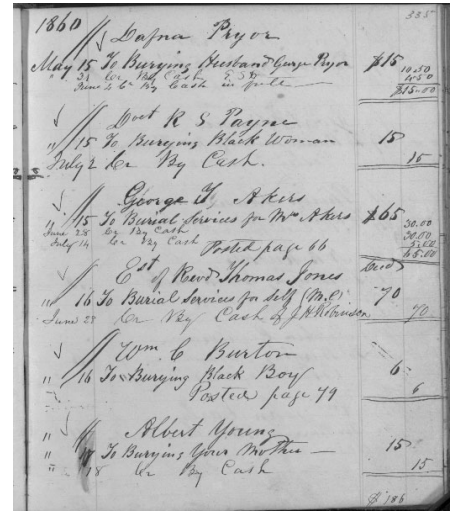 1860 335
Dafna Pryor
May 15 To Burying Husband George Pryor $15
31 Cr By Cash 10.50
June 4 Cr By Cash in full 4.50
$15.00
Doct R S Payne
" 15 To Burying Black Woman 15
July 2 Cr By Cash. 15
George T Akers
" 15 To Burial Services for Mrs Akers $65
June 28 Cr By Cash 30.00
July 14 Cr By Cash 30.00
5.00
Posted page 66 65.00
Est of Revd Thomas Jones
" 16 To Burial Services for self 70
June 28 Cr By Cash of J H Robinson 70
Wm. C Burton
" 16 To Burying Black Boy 6
Posted page 79 6
Albert Young
" 18 To Burying Your Mother — 15
" 18 Cr By Cash 15
$ 186